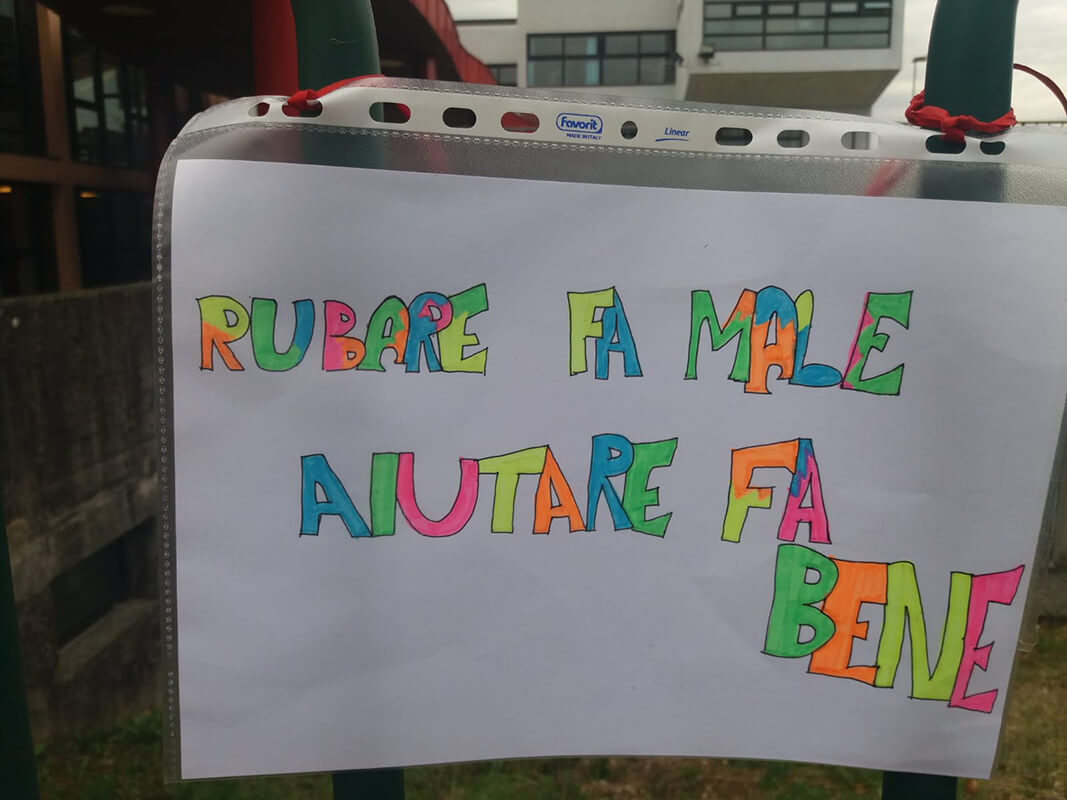 Favorit
MADE IN ITALY
Linear
RUBARE FA MALE
AIUTARE FA
BENE